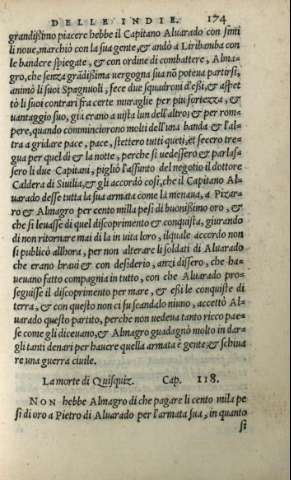 DELLE INDIE. 174
grandißimo piacere hebbe il Capitano Aluarado con simi
li noue, marchiò con la sua gente, & andò a Liribamba con
le bandere spiegate, & con ordine di combattere, Alma-
gro, che senza grãdißima uergogna sua nõ poteua partirsi,
animò li suoi Spagnuoli, fece due squadroni d'eßi, & aspet
tò li suoi contrari fra certe muraglie per piu fortezza, &
uantaggio suo, gia erano a uista lun dell'altro; & per rom-
pere, quando comminciorono molti dell'una banda & l'al-
tra a gridare pace, pace, stettero tutti queti, et fecero tre-
gua per quel di & la notte, perche si uedessero, & parlas-
sero li due Capitani, pigliò l'assunto del negotio il dottore
Caldera di Siuilia, & gli accordò così, che il Capitano Al-
uarado desse tutta la sua armata come la menaua, a Pizar-
ro & Almagro per cento mila pesi di buonißimo oro, &
che si leuasse di quel discoprimento & conquista, giurando
di non ritornare mai di la in uita loro, ilquale accordo non
si publicò allhora, per non alterare li soldati di Aluarado
che erano braui & con desiderio, anzi dissero, che ha-
ueuano fatto compagnia in tutto, con che Aluarado pro-
seguisse il discoprimento per mare, & eßi le conquiste di
terra, & con questo non ci fu scandalo niuno, accettò Al-
uarado questo partito, perche non uedeua tanto ricco pae-
se come gli diceuano, & Almagro guadagnò molto in dar-
gli tanti denari per hauere quella armata e gente & schiua
re una guerra ciuile.
La morte di Quisquiz. Cap. 118.
NON hebbe Almagro di che pagare li cento mila pe
si di oro a Pietro di Aluarado per l'armata sua, in quanto
si